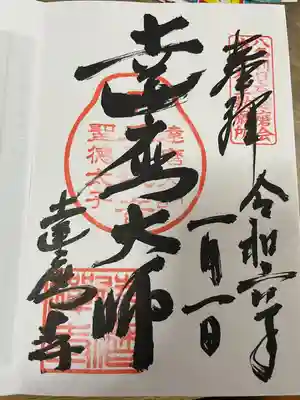 奉拝
令和六年
一月一日
達磨大師
聖徳太子
達磨寺